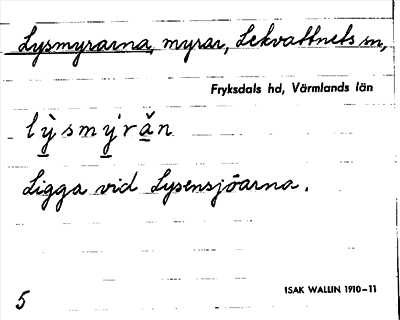 Lysmyrarna, myrar, Lekvattnets sn,
Fryksdals hd, Värmlands län
lỳsmýrǎn
Ligga vid Lysensjöarna.
5
ISAK WALLIN 1910-11